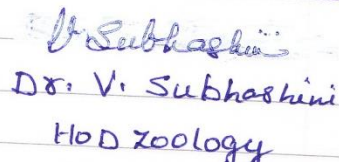 V Subhashini
Dr. V. Subhashini
HOD Zoology